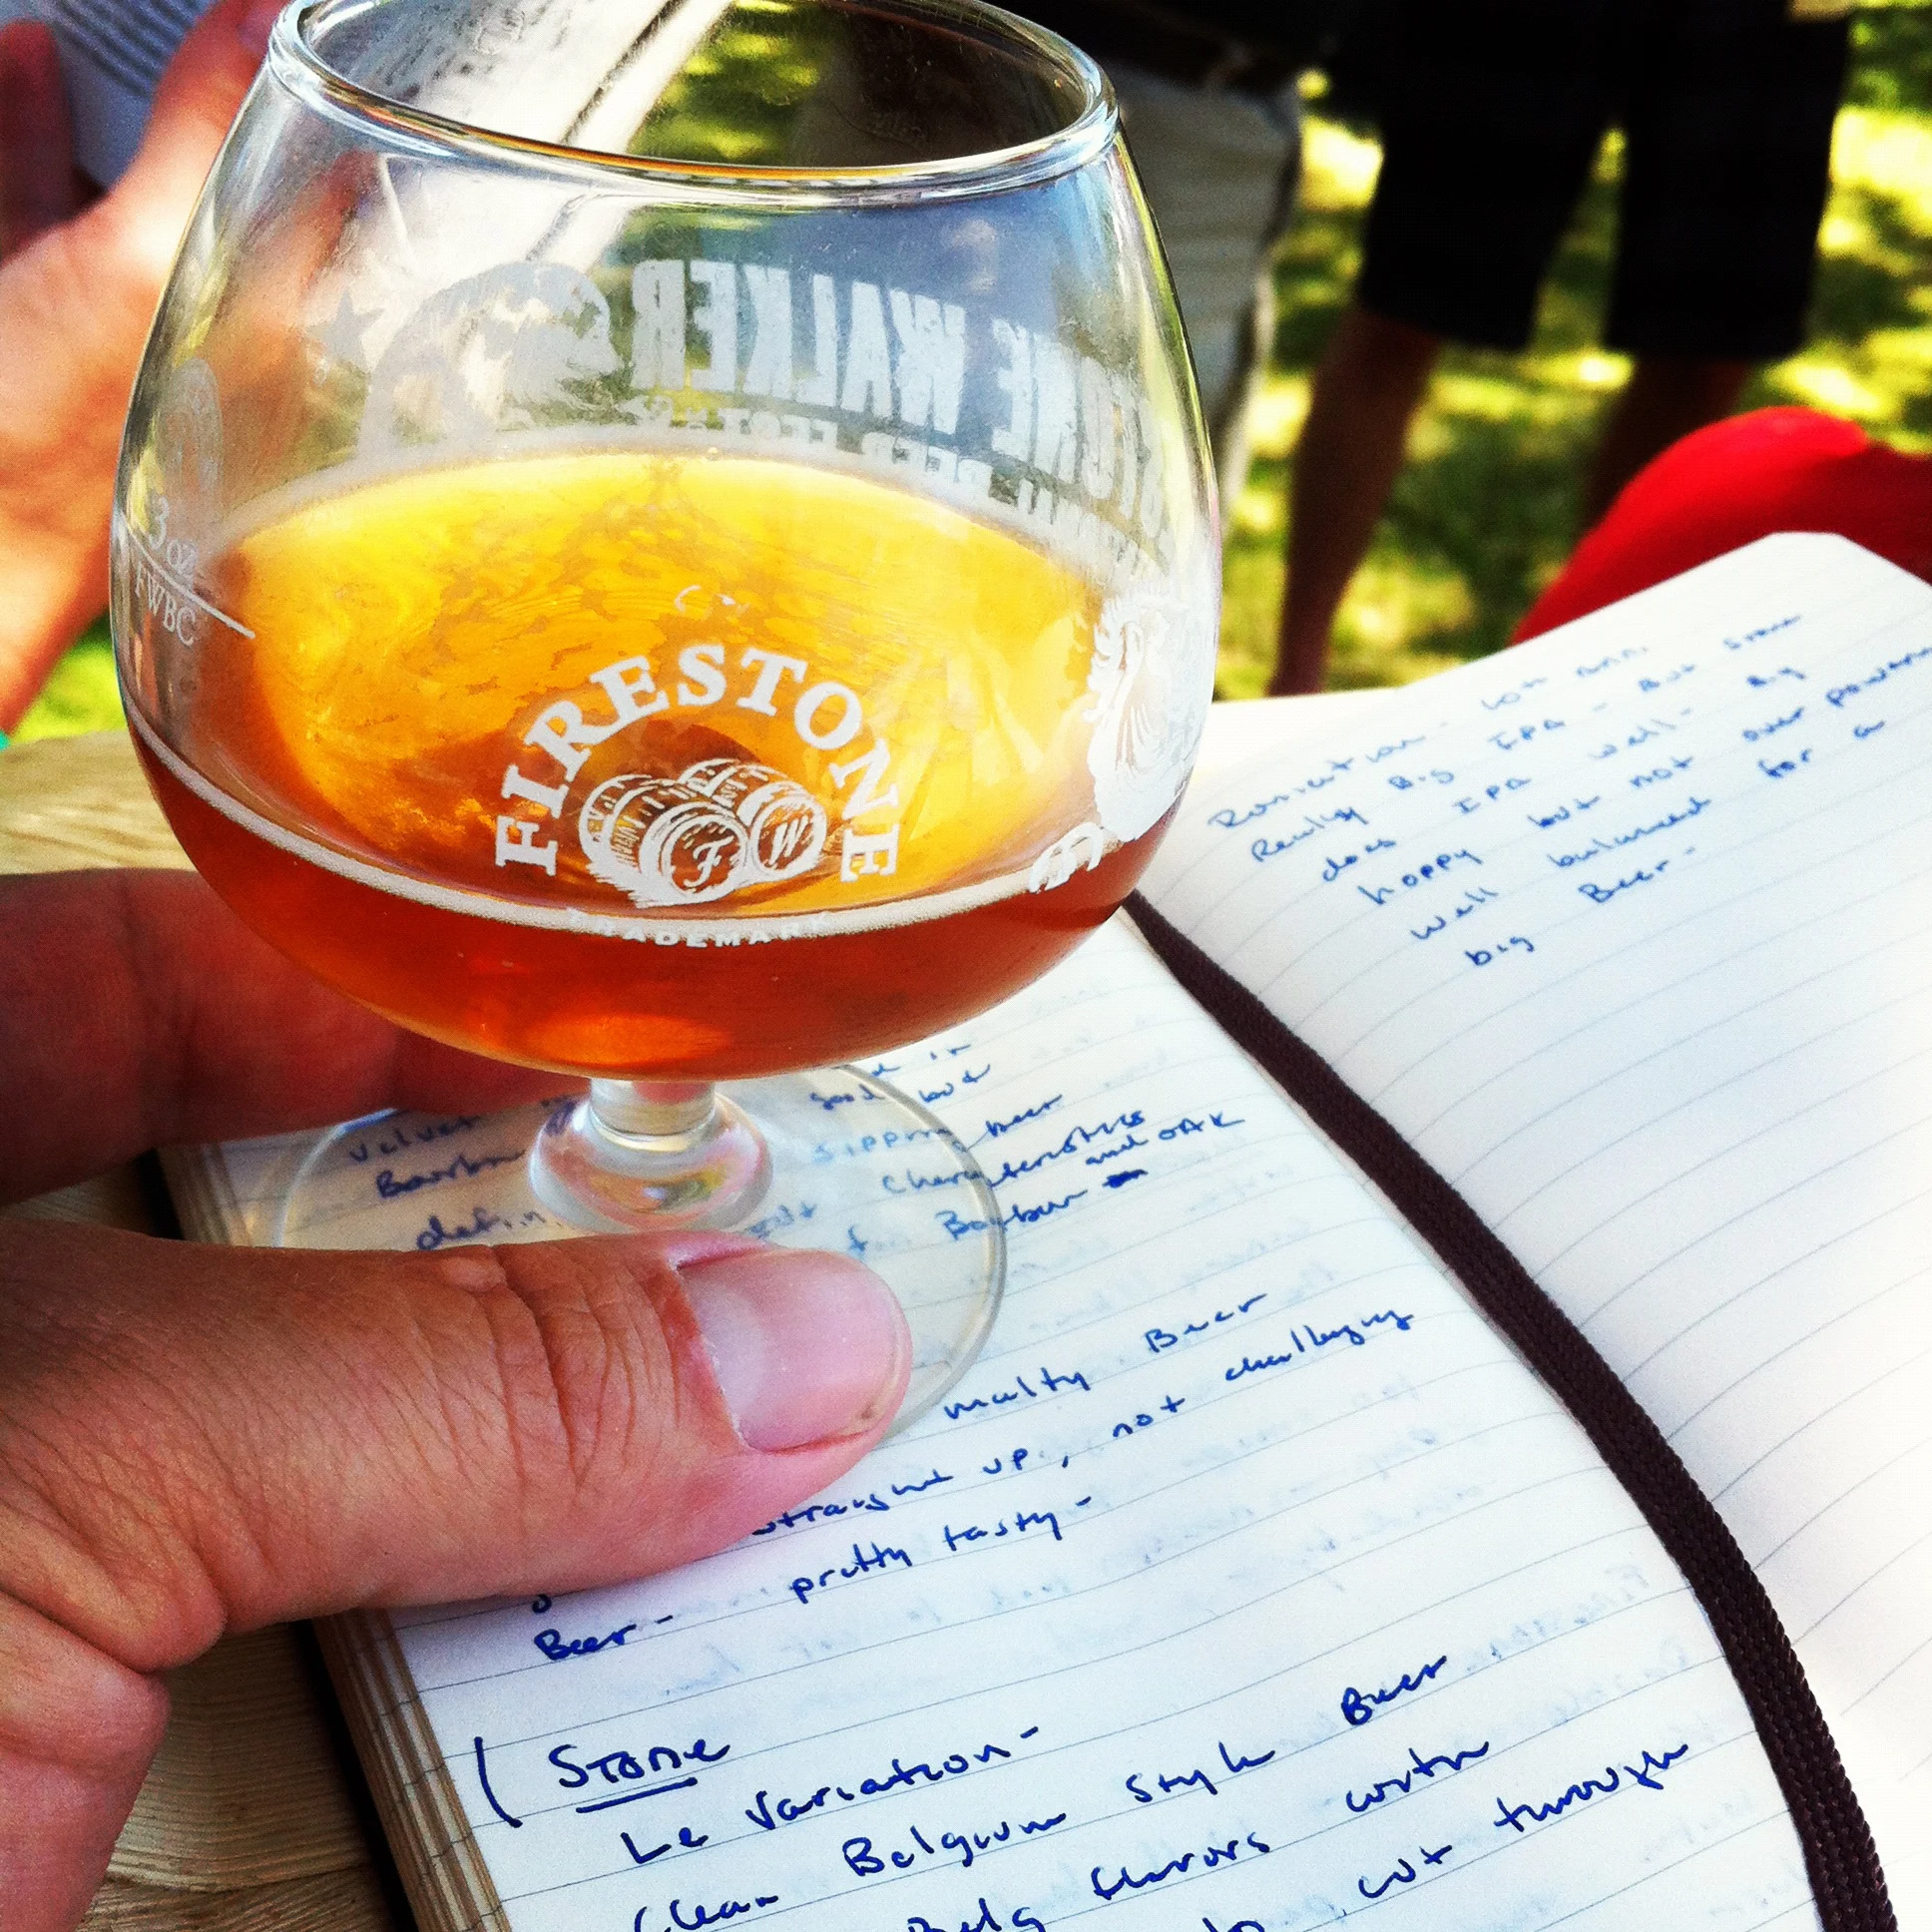 FIRESTONE WALKER
BEER FEST
3 oz
FWBC
FIRESTONE
F W
TRADEMARK
Really Big IPA - But Stone
does IPA well - Big
hoppy but not over power
well balanced for a
big Beer -
Velvet
good but
Bourbon sipping beer
characteristics
and OAK
Bourbon
malty Beer
straight up, not challenging
Beer - pretty tasty -
Stone
Le Variation -
Clean Belgium Style Beer
flavors with
cut through